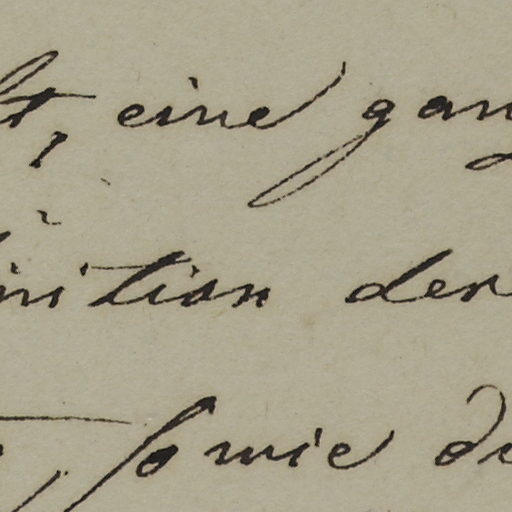 lt, eine ganz
inition der
, sowie di